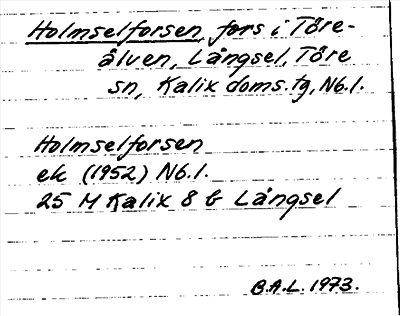 Holmselforsen, fors i Töre-
älven, Långsel, Töre
sn, Kalix doms.tg, Nb.l.
Holmselforsen
ek (1952) Nb.l.
25 M Kalix 8 b Långsel
B.A.L. 1973.